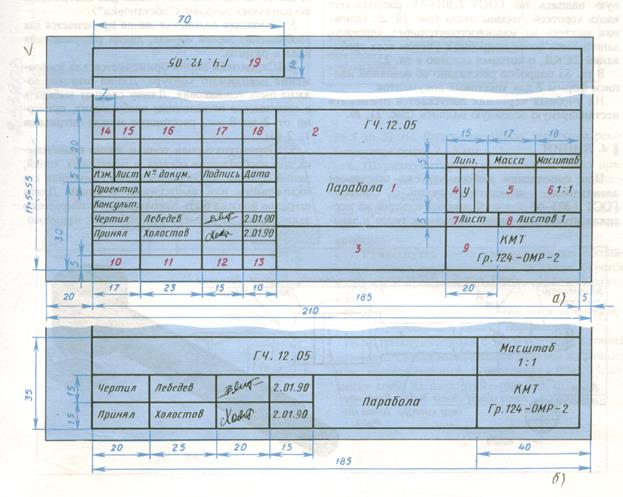 70
ГЧ. 12. 05
19
14
7
14 15 16 17 18
2
ГЧ.12.05
15 17 18
20
5
Лит. Масса Масштаб
Изм. Лист № докум. Подпись Дата
Парабола 1
4 у 5 6 1:1
11×5=55
Проектир.
Консульт.
5
7 Лист 8 Листов 1
Чертил Лебедев 2.01.90
30
Принял Холостов 2.01.90
3
9 КМТ
Гр.124-ОМР-2
5
10 11 12 13
20 17 23 15 10 185 20 5
а)
210
ГЧ.12.05
Масштаб
1:1
35
15
Чертил Лебедев 2.01.90
Парабола
КМТ
Гр.124-ОМР-2
15
Принял Холостов 2.01.90
20 25 20 15 40
185
б)